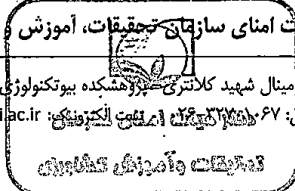 ت امنای سازمان تحقیقات، آموزش و
رمینال شهید کلانتری پژوهشکده بیوتکنولوژی
پست الکترونیکی: i.ac.ir
دفتر هیات امنای
تحقیقات وآموزش کشاورزی